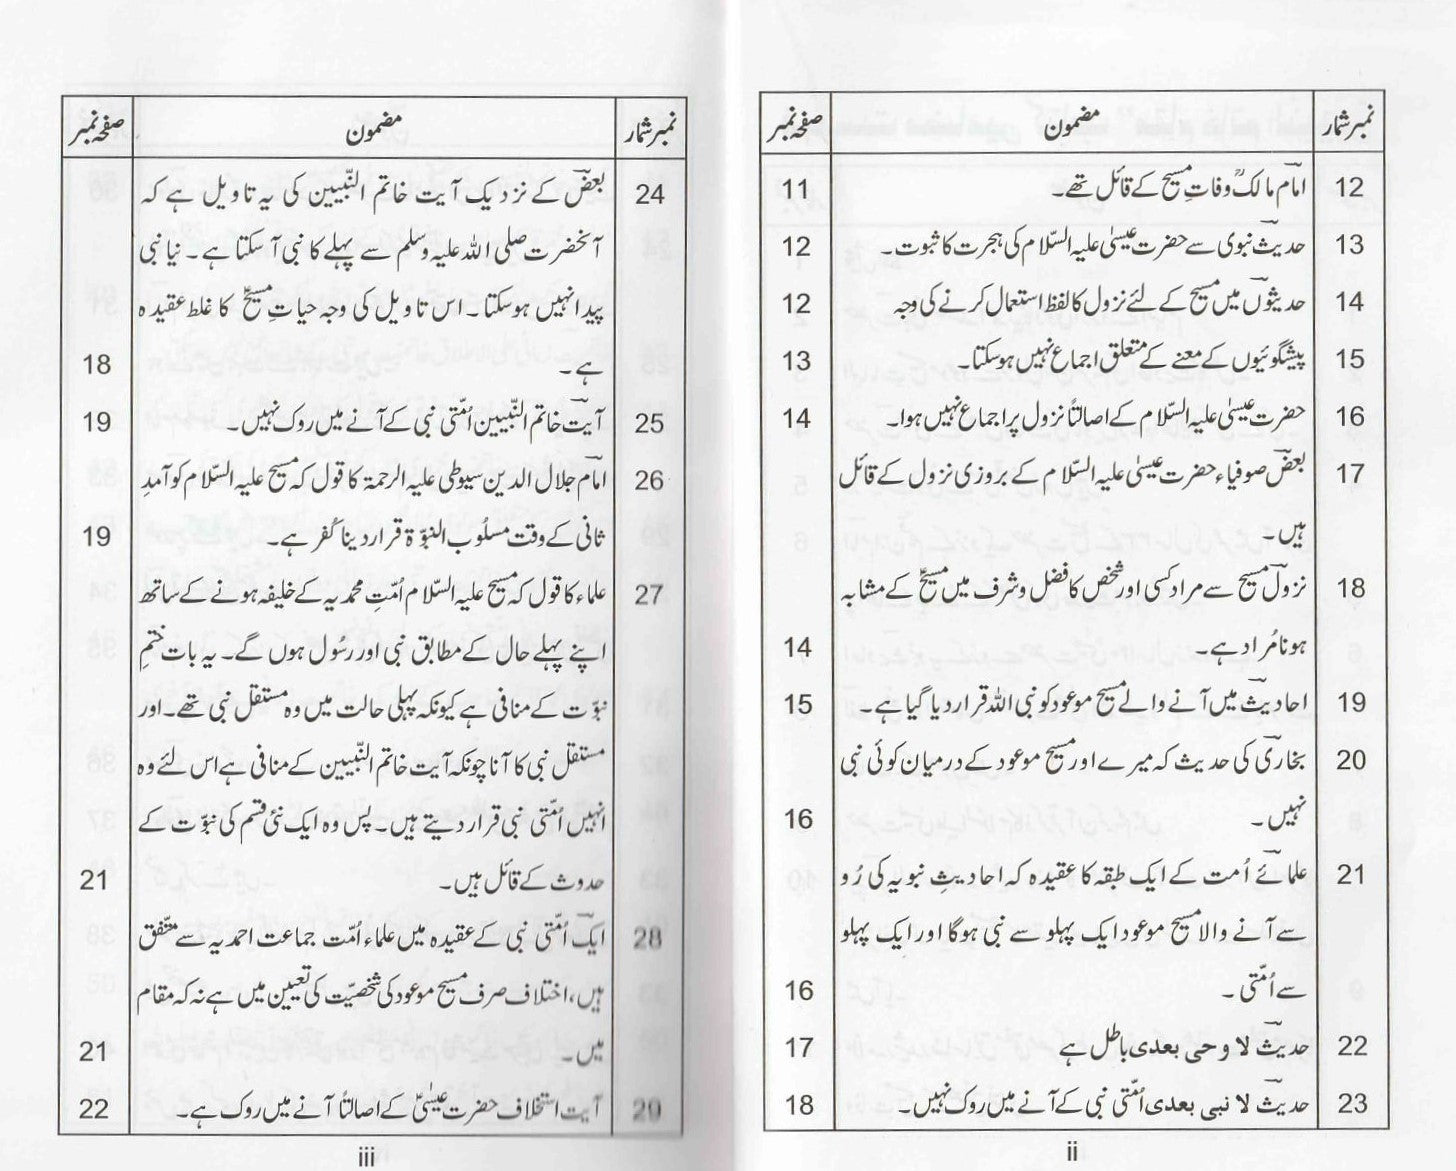 نمبر شمار مضمون صفحہ نمبر
12 امام مالکؒ وفاتِ مسیح کے قائل تھے۔ 11
13 حدیث نبوی سے حضرت عیسیٰ علیہ السّلام کی ہجرت کا ثبوت۔ 12
14 حدیثوں میں مسیح کے لئے نزول کا لفظ استعمال کرنے کی وجہ 12
15 پیشگوئیوں کے معنے کے متعلق اجماع نہیں ہوسکتا۔ 13
16 حضرت عیسیٰ علیہ السّلام کے اصالتاً نزول پر اجماع نہیں ہوا۔ 14
17 بعض صوفیاء حضرت عیسیٰ علیہ السّلام کے بروزی نزول کے قائل
ہیں۔
18 نزول مسیح سے مراد کسی اور شخص کا فضل و شرف میں مسیحؑ کے مشابہ
ہونا مُراد ہے۔ 14
19 احادیث میں آنے والے مسیح موعود کو نبی اللہ قرار دیا گیا ہے۔ 15
20 بخاری کی حدیث کہ میرے اور مسیح موعود کے درمیان کوئی نبی
نہیں۔ 16
21 علمائے اُمت کے ایک طبقہ کا عقیدہ کہ احادیثِ نبویہ کی رُو
سے آنے والا مسیح موعود ایک پہلو سے نبی ہوگا اور ایک پہلو
سے اُمّتی۔ 16
22 حدیث لا وحی بعدی باطل ہے 17
23 حدیث لا نبی بعدی اُمّتی نبی کے آنے میں روک نہیں۔ 18
ii
نمبر شمار مضمون صفحہ نمبر
24 بعض کے نزدیک آیت خاتم النّبیین کی یہ تاویل ہے کہ
آنحضرت صلی اللہ علیہ وسلم سے پہلے کا نبی آ سکتا ہے۔ نیا نبی
پیدا نہیں ہوسکتا۔ اس تاویل کی وجہ حیاتِ مسیحؑ کا غلط عقیدہ
ہے۔ 18
25 آیت خاتم النّبیین اُمّتی نبی کے آنے میں روک نہیں۔ 19
26 امام جلال الدین سیوطی علیہ الرحمۃ کا قول کہ مسیح علیہ السّلام کو آمدِ
ثانی کے وقت مسلُوب النبوّۃ قرار دینا کُفر ہے۔ 19
27 علماء کا قول کہ مسیح علیہ السّلام اُمّتِ محمدیہ کے خلیفہ ہونے کے ساتھ
اپنے پہلے حال کے مطابق نبی اور رسُول ہوں گے۔ یہ بات ختمِ
نبوّت کے منافی ہے کیونکہ پہلی حالت میں وہ مستقل نبی تھے۔ اور
مستقل نبی کا آنا چونکہ آیت خاتم النّبیین کے منافی ہے اس لئے وہ
انہیں اُمّتی نبی قرار دیتے ہیں۔ پس وہ ایک نئی قسم کی نبوّت کے
حدوث کے قائل ہیں۔ 21
28 ایک اُمّتی نبی کے عقیدہ میں علماء اُمّت جماعت احمدیہ سے متّفق
ہیں، اختلاف صرف مسیح موعود کی شخصیّت کی تعیین میں ہے نہ کہ مقام
میں۔ 21
29 آیت استخلاف حضرت عیسیٰؑ کے اصالتاً آنے میں روک ہے۔ 22
iii